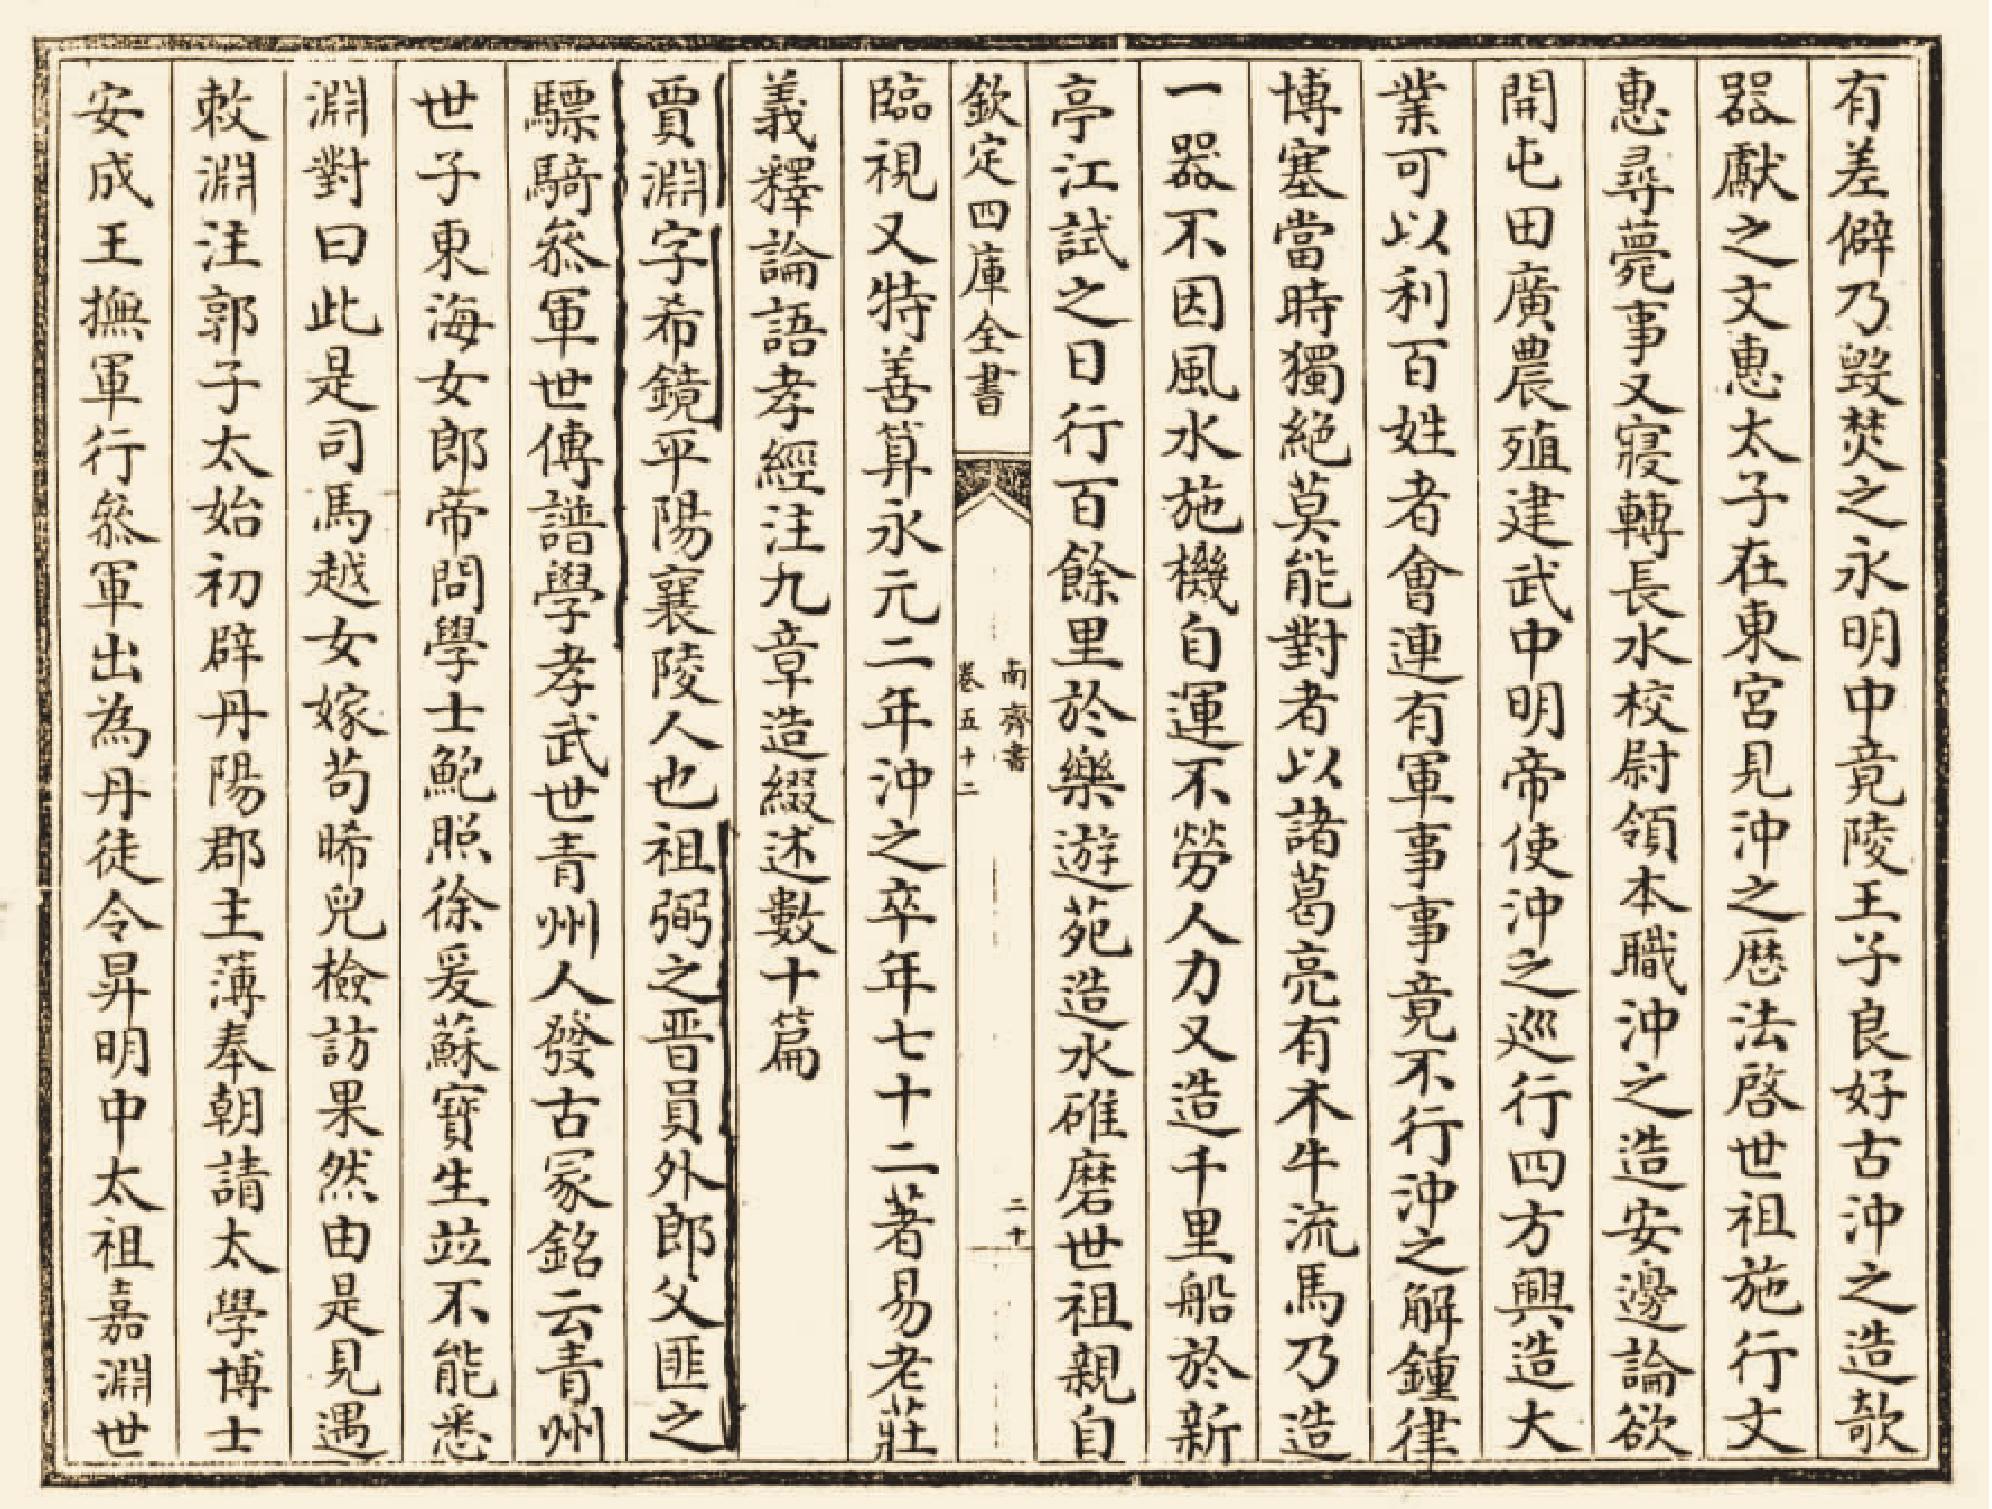 有差僻乃毀焚之永明中竟陵王子良好古沖之造欹
器獻之文惠太子在東宮見沖之歷法啓世祖施行文
惠尋薨事又寢轉長水校尉領本職沖之造安邊論欲
開屯田廣農殖建武中明帝使沖之巡行四方興造大
業可以利百姓者會連有軍事事竟不行沖之解鍾律
博塞當時獨絕莫能對者以諸葛亮有木牛流馬乃造
一器不因風水施機自運不勞人力又造千里船於新
亭江試之日行百餘里於樂遊苑造水碓磨世祖親自
欽定四庫全書
南齊書
卷五十二
二十
臨視又特善算永元二年沖之卒年七十二著易老莊
義釋論語孝經注九章造綴述數十篇
賈淵字希鏡平陽襄陵人也祖弼之晋員外郎父匪之
驃騎叅軍世傳譜學孝武世青州人發古冢銘云青州
世子東海女郎帝問學士鮑照徐爰蘇寶生竝不能悉
淵對曰此是司馬越女嫁苟晞兒檢訪果然由是見遇
敕淵注郭子太始初辟丹陽郡主薄奉朝請太學博士
安成王撫軍行叅軍出為丹徒令昇明中太祖嘉淵世